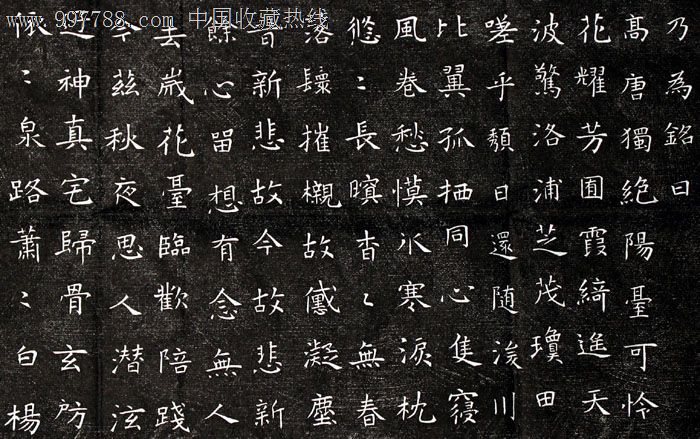 www.997788.com 中国收藏热线
乃為銘曰
高唐獨絕陽臺可怜
花耀芳圃霞綺遙天
波驚洛浦芝茂瓊田
嗟乎頹日還随浚川
比翼孤栖同心隻寢
風卷愁慔氷寒淚枕
悠〻長暝杳〻無春
落鬟摧櫬故黛凝塵
昔新悲故今故悲新
餘心留想有念無人
去歲花臺臨歡陪踐
今茲秋夜思人潜泫
遊神真宅歸骨玄房
依〻泉路蕭〻白楊